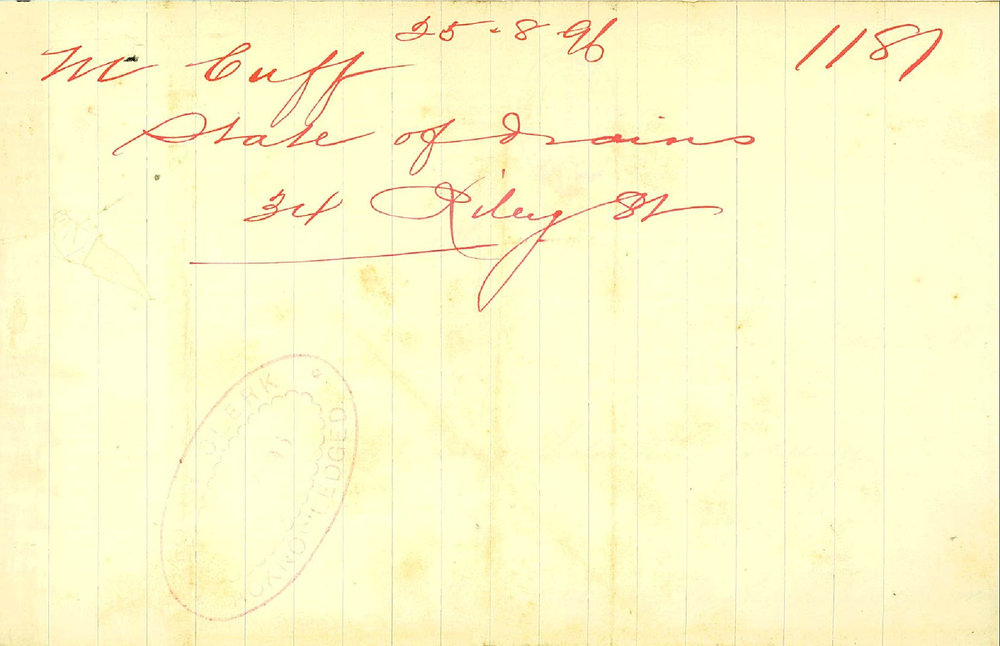 25-8 96 1187
Mc Cuff
State of drains
34 Riley St
CLERK
ACKNOWLEDGED